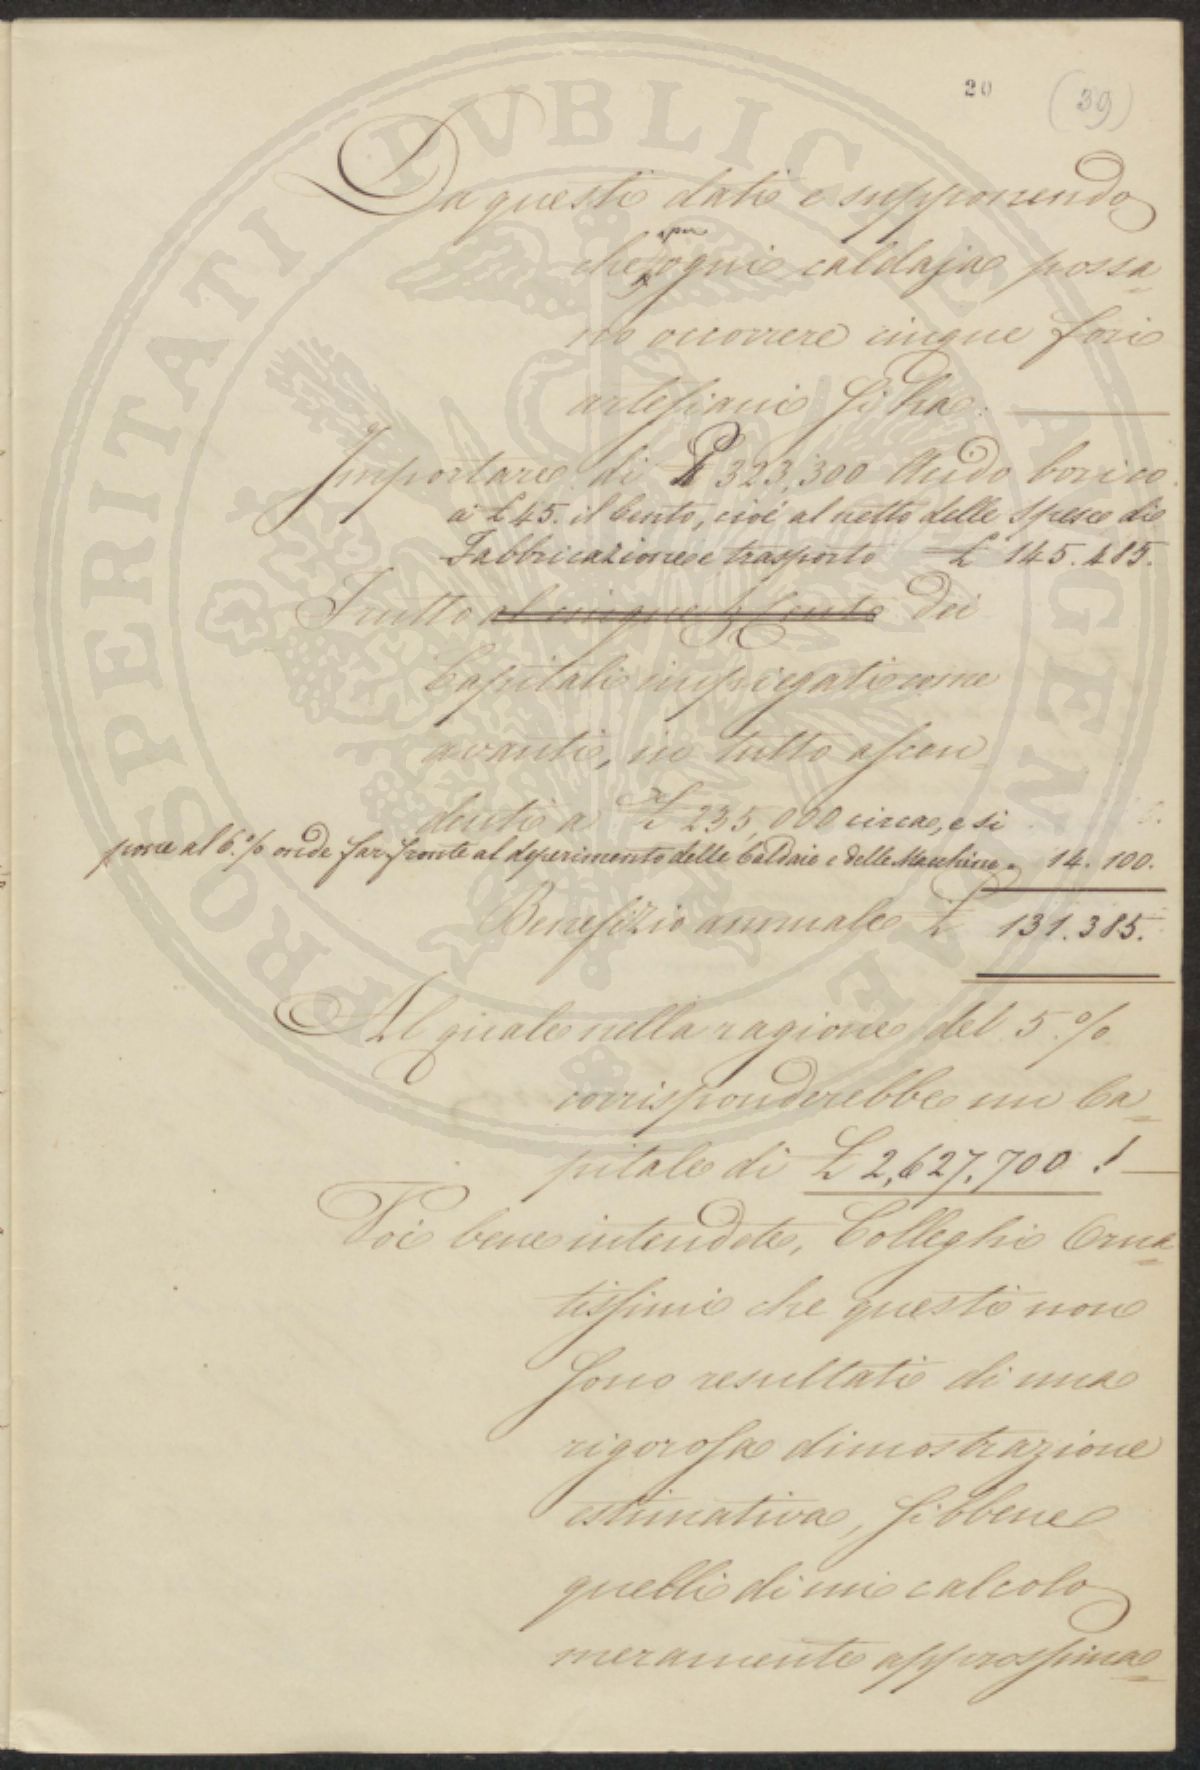 20 (39)
Da questi dati e supponendo
che per ogni caldaja possa-
no occorrere cinque fori
artesiani si ha:
Importare di £ 323,300 Acido borico
a £ 45. il Cento, cioè al netto delle spese di
Fabbricazione e trasporto £ 145.485.
Frutto al cinque p Cento dei
Capitali impiegati come
avanti, in tutto ascen
denti a £ 235,000 circa, e si
pone al 6.% onde far fronte al deperimento delle Caldaie e delle Macchine. 14.100.
Benefizio annuale £ 131.385.
Al quale nella ragione del 5.%
corrisponderebbe un Ca-
pitale di £ 2,627,700 !
Voi bene intendete, Colleghi Orna-
tissimi che questi non
sono resultati di una
rigorosa dimostrazione
estimativa, sibbene
quelli di un calcolo
meramente approssima-
PROSPERITATI PVBLICAE AVGENDAE